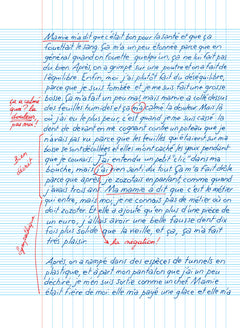 Mamie m'a dit que c'était bon pour la santé et que ça
fouettait le sang. Ça m'a un peu étonnée parce que en
général quand on fouette quelqu'un, ça ne lui fait pas
du bien. Après, on a grimpé sur une poutre et on a fait de
l'équilibre. Enfin, moi j'ai plutôt fait du déséquilibre,
parce que je suis tombée et je me suis fait une grosse
bosse. Ça m'a fait un peu mal mais mamie a collé dessus
des feuilles humides et ça m'a calmé la douleur. Mais là
où j'ai eu le plus peur, c'est quand je me suis cassé la
dent de devant en me cognant contre un poteau que je
n'avais pas vu parce que les feuilles qui étaient sur ma
bosse se sont décollées et elles m'ont caché les yeux pendant
que je courais. J'ai entendu un petit "clic" dans ma
bouche, mais j'ai rien senti du tout. Ça m'a fait drôle
parce que après, je zozotais en parlant comme quand
j'avais trois ans. Ma mamie a dit que c'est le métier
qui entre, mais moi, je ne connais pas de métier où on
doit zozoter. Et elle a ajouté qu'en plus d'une pièce de
un euro, j'allais avoir une belle fausse dent dix
fois plus solide que la vieille, et ça, ça m'a fait
très plaisir.
la négation!
Après, on a rampé dans des espèces de tunnels en
plastique, et à part mon pantalon que j'ai un peu
déchiré, je m'en suis sortie comme un chef. Mamie
était fière de moi: elle m'a payé une glace et elle m'a
ça a calmé
que? la
douleur,
pas moi!
Bien
décrit
Sympathique